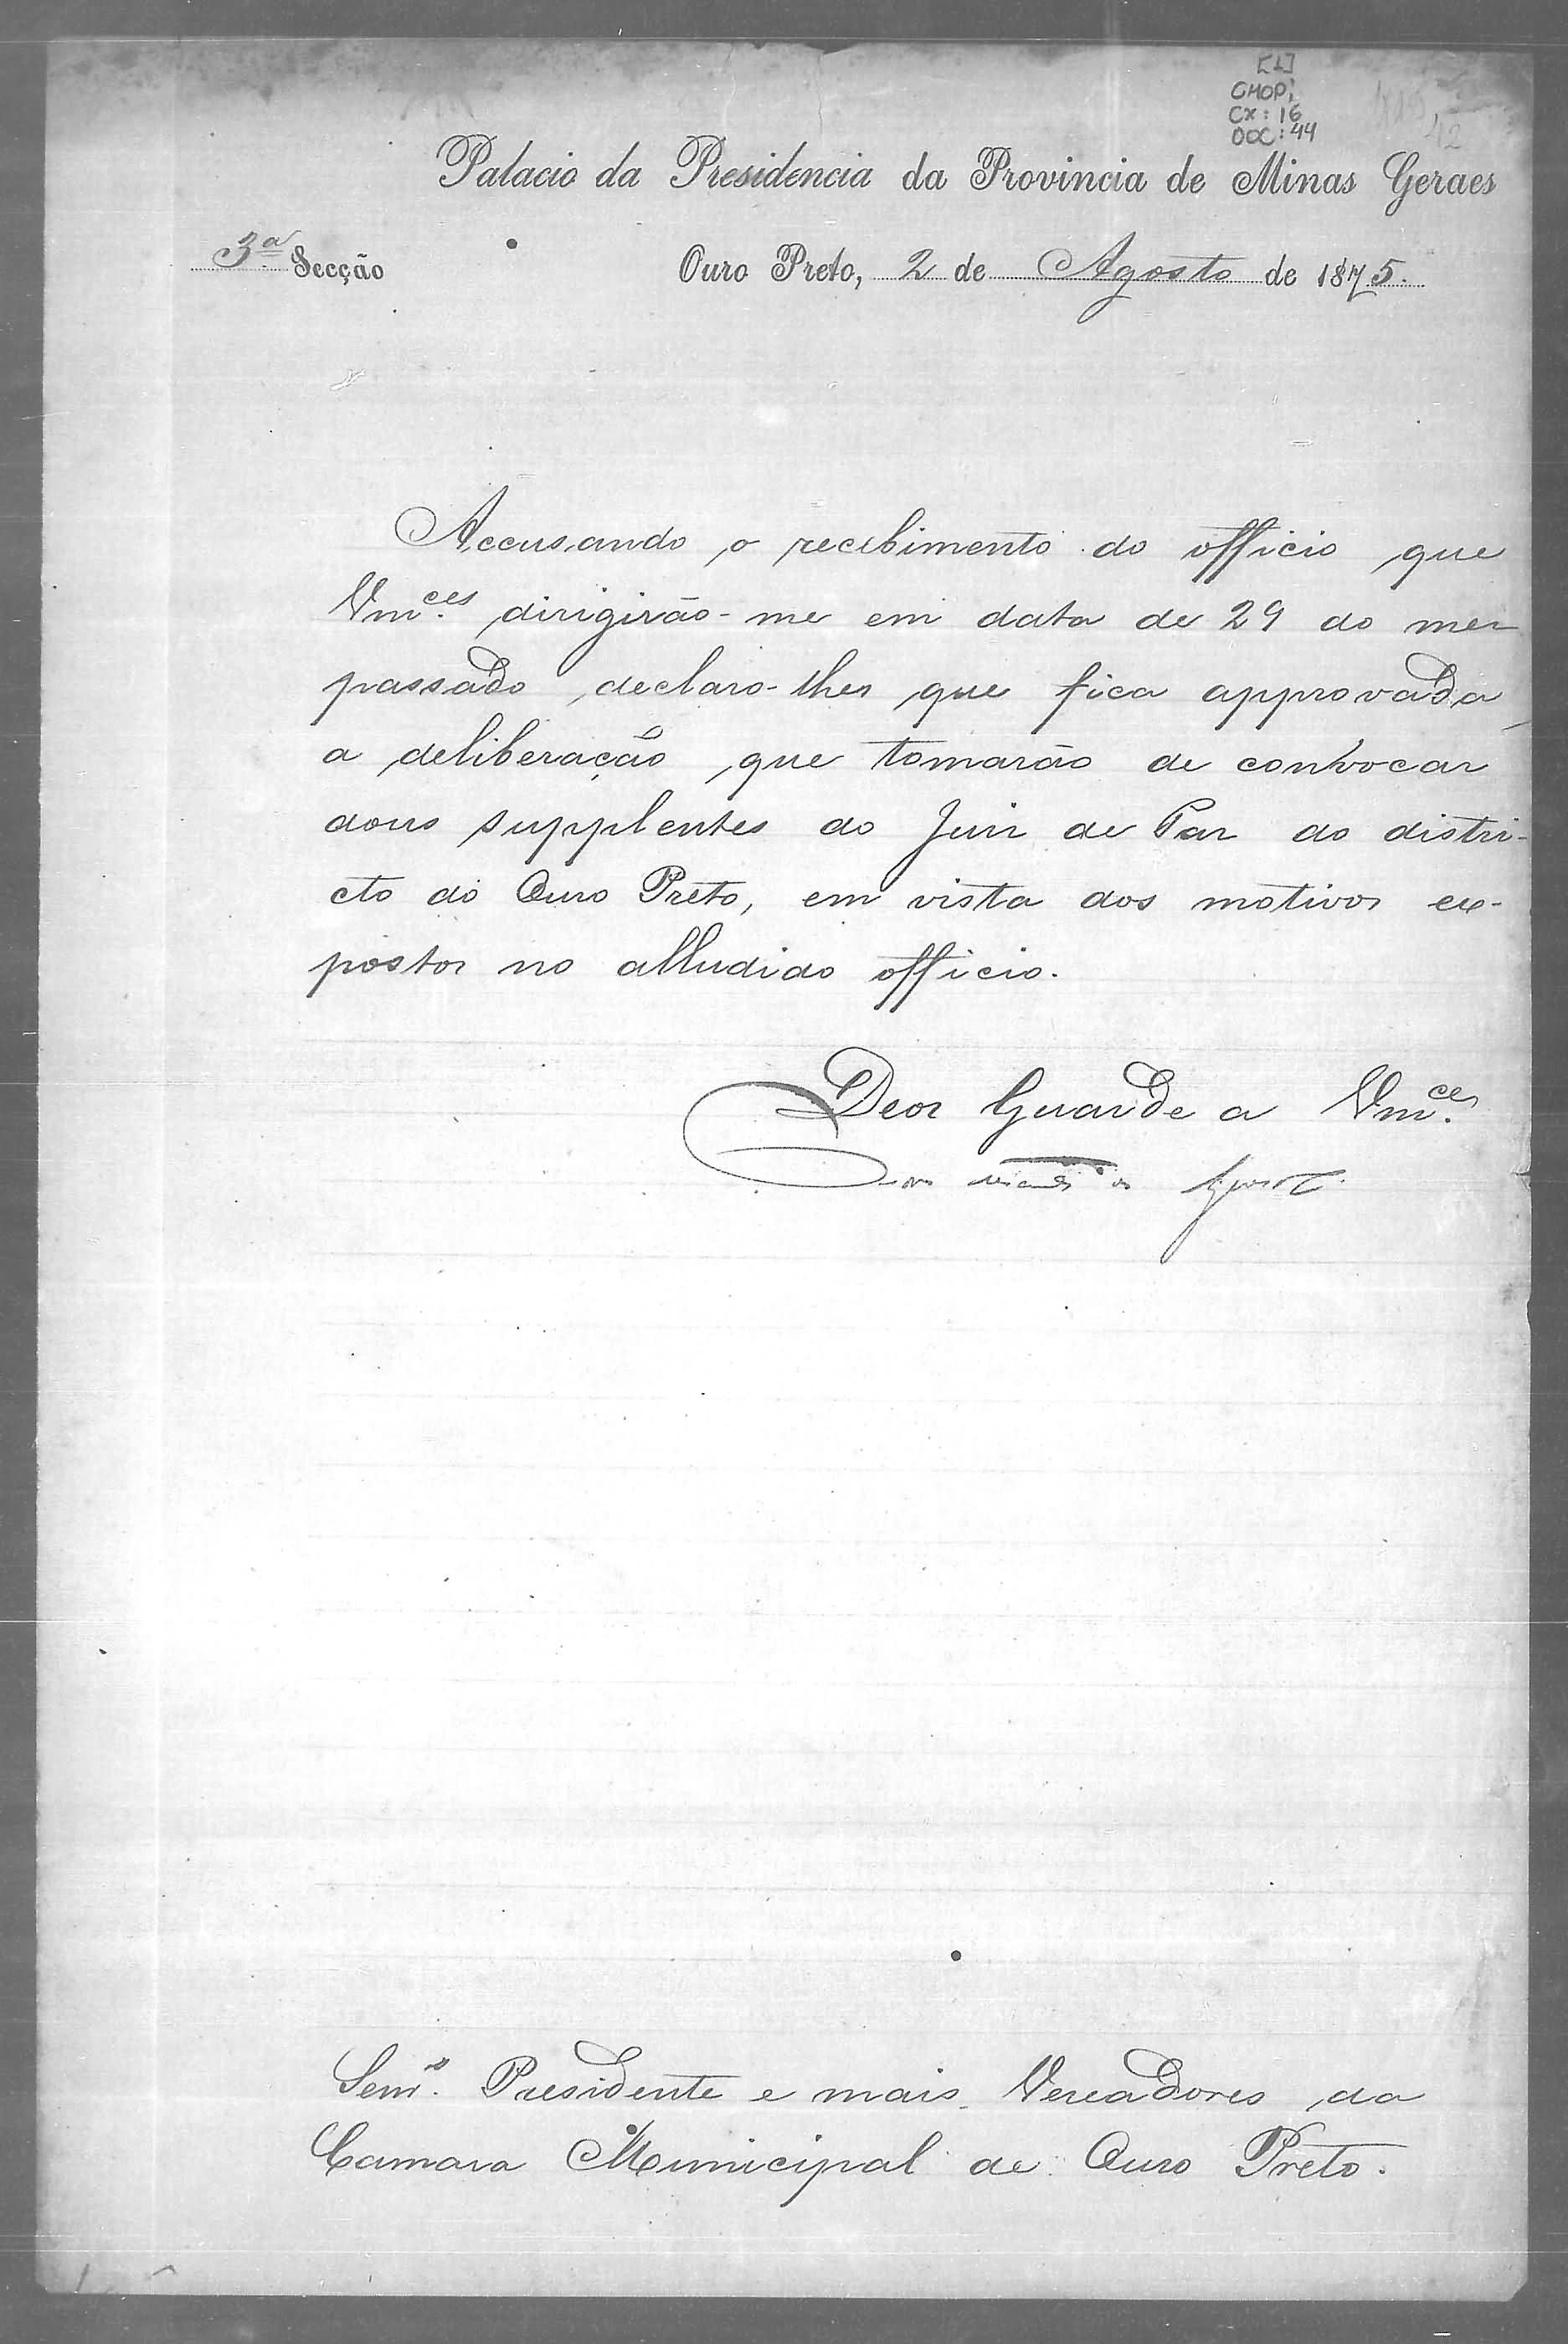 [1]
CMOP;
CX: 16
DOC: 44
42
Palacio da Presidencia da Provincia de Minas Geraes
3ª Secção
Ouro Preto, 2 de Agosto de 1875.
Accusando o recebimento do officio que
Vm.ces dirigirão-me em data de 29 do mez
passado, declaro-lhes que fica approvada
a deliberação que tomarão de convocar
dous supplentes do Juiz de Paz do distri-
cto do Ouro Preto, em vista dos motivos ex-
postos no alludido officio.
Deos Guarde a Vm.ces
Senr.s Presidente e mais Vereadores da
Camara Municipal de Ouro Preto.